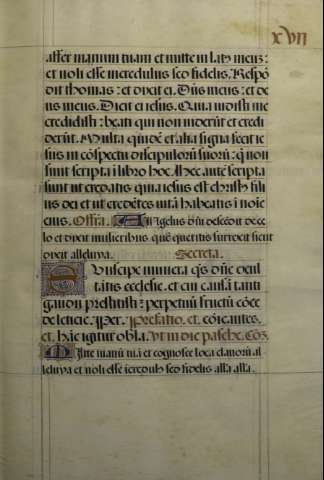 xvii
affer manum tuam et mitte in lat9 meuz:
et noli esse incredulus sed fidelis. Respō
dit thomas: et dixit ei. Dn̄s meus: et de
us meus. Dicit ei iesus. Quia vidisti me
credidisti: beati qui non viderūt et credi
derūt. Multa quidē et alia signa fecit ie
sus in cōspectu discipulorū suorū: q̄ non
sunt scripta ī libro hoc. Hec autē scripta
sunt ut credatis quia iesus est christus fili
us dei et ut credētes vitā habeatis ī noīe
eius. Offra. Angelus dn̄i descēdit de ce
lo et dixit mulieribus quē queritis surrexit sicut
dixit alleluya. Secreta.
Suscipe munera q̄s dn̄e exul
tātis ecclesie. et cui causā tanti
gaudii prestitisti: perpetuū fructū cōce
de leticie. Per. Prefatio. et. Cōicantes.
et. Hāc igitur obla. Vt in die pasche. Cō̄.
Mitte manū tuā et cognosce loca clauorū al
leluya et noli esse īcredul9 sed fidelis alla alla.